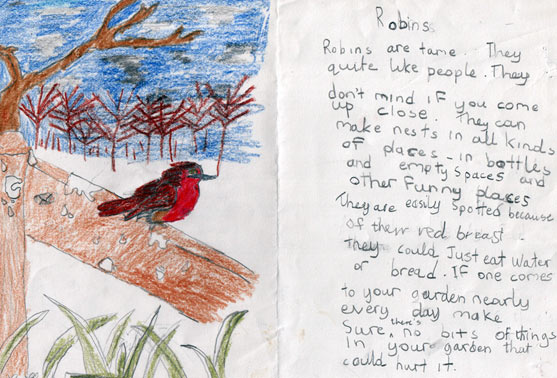 Robins
Robins are tame. They
quite like people. They
don't mind if you come
up close. They can
make nests in all kinds
of places - in bottles
and empty spaces and
other funny places
They are easily spotted because
of their red breast.
They could Just eat water
or bread. If one comes
to your garden nearly
every day make
Sure there's no bits of things
In your garden that
could hurt it.